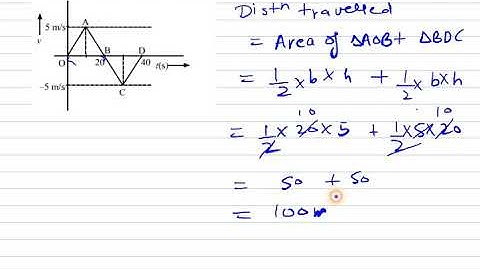 5 m/s
v
A
O
B
20
D
40
t(s)
-5 m/s
C
Distn travelled
= Area of ΔAOB + ΔBDC
= 1/2 × b × h + 1/2 × b × h
= 1/2 × 20 × 5 + 1/2 × 5 × 20
10 10
= 50 + 50
= 100m